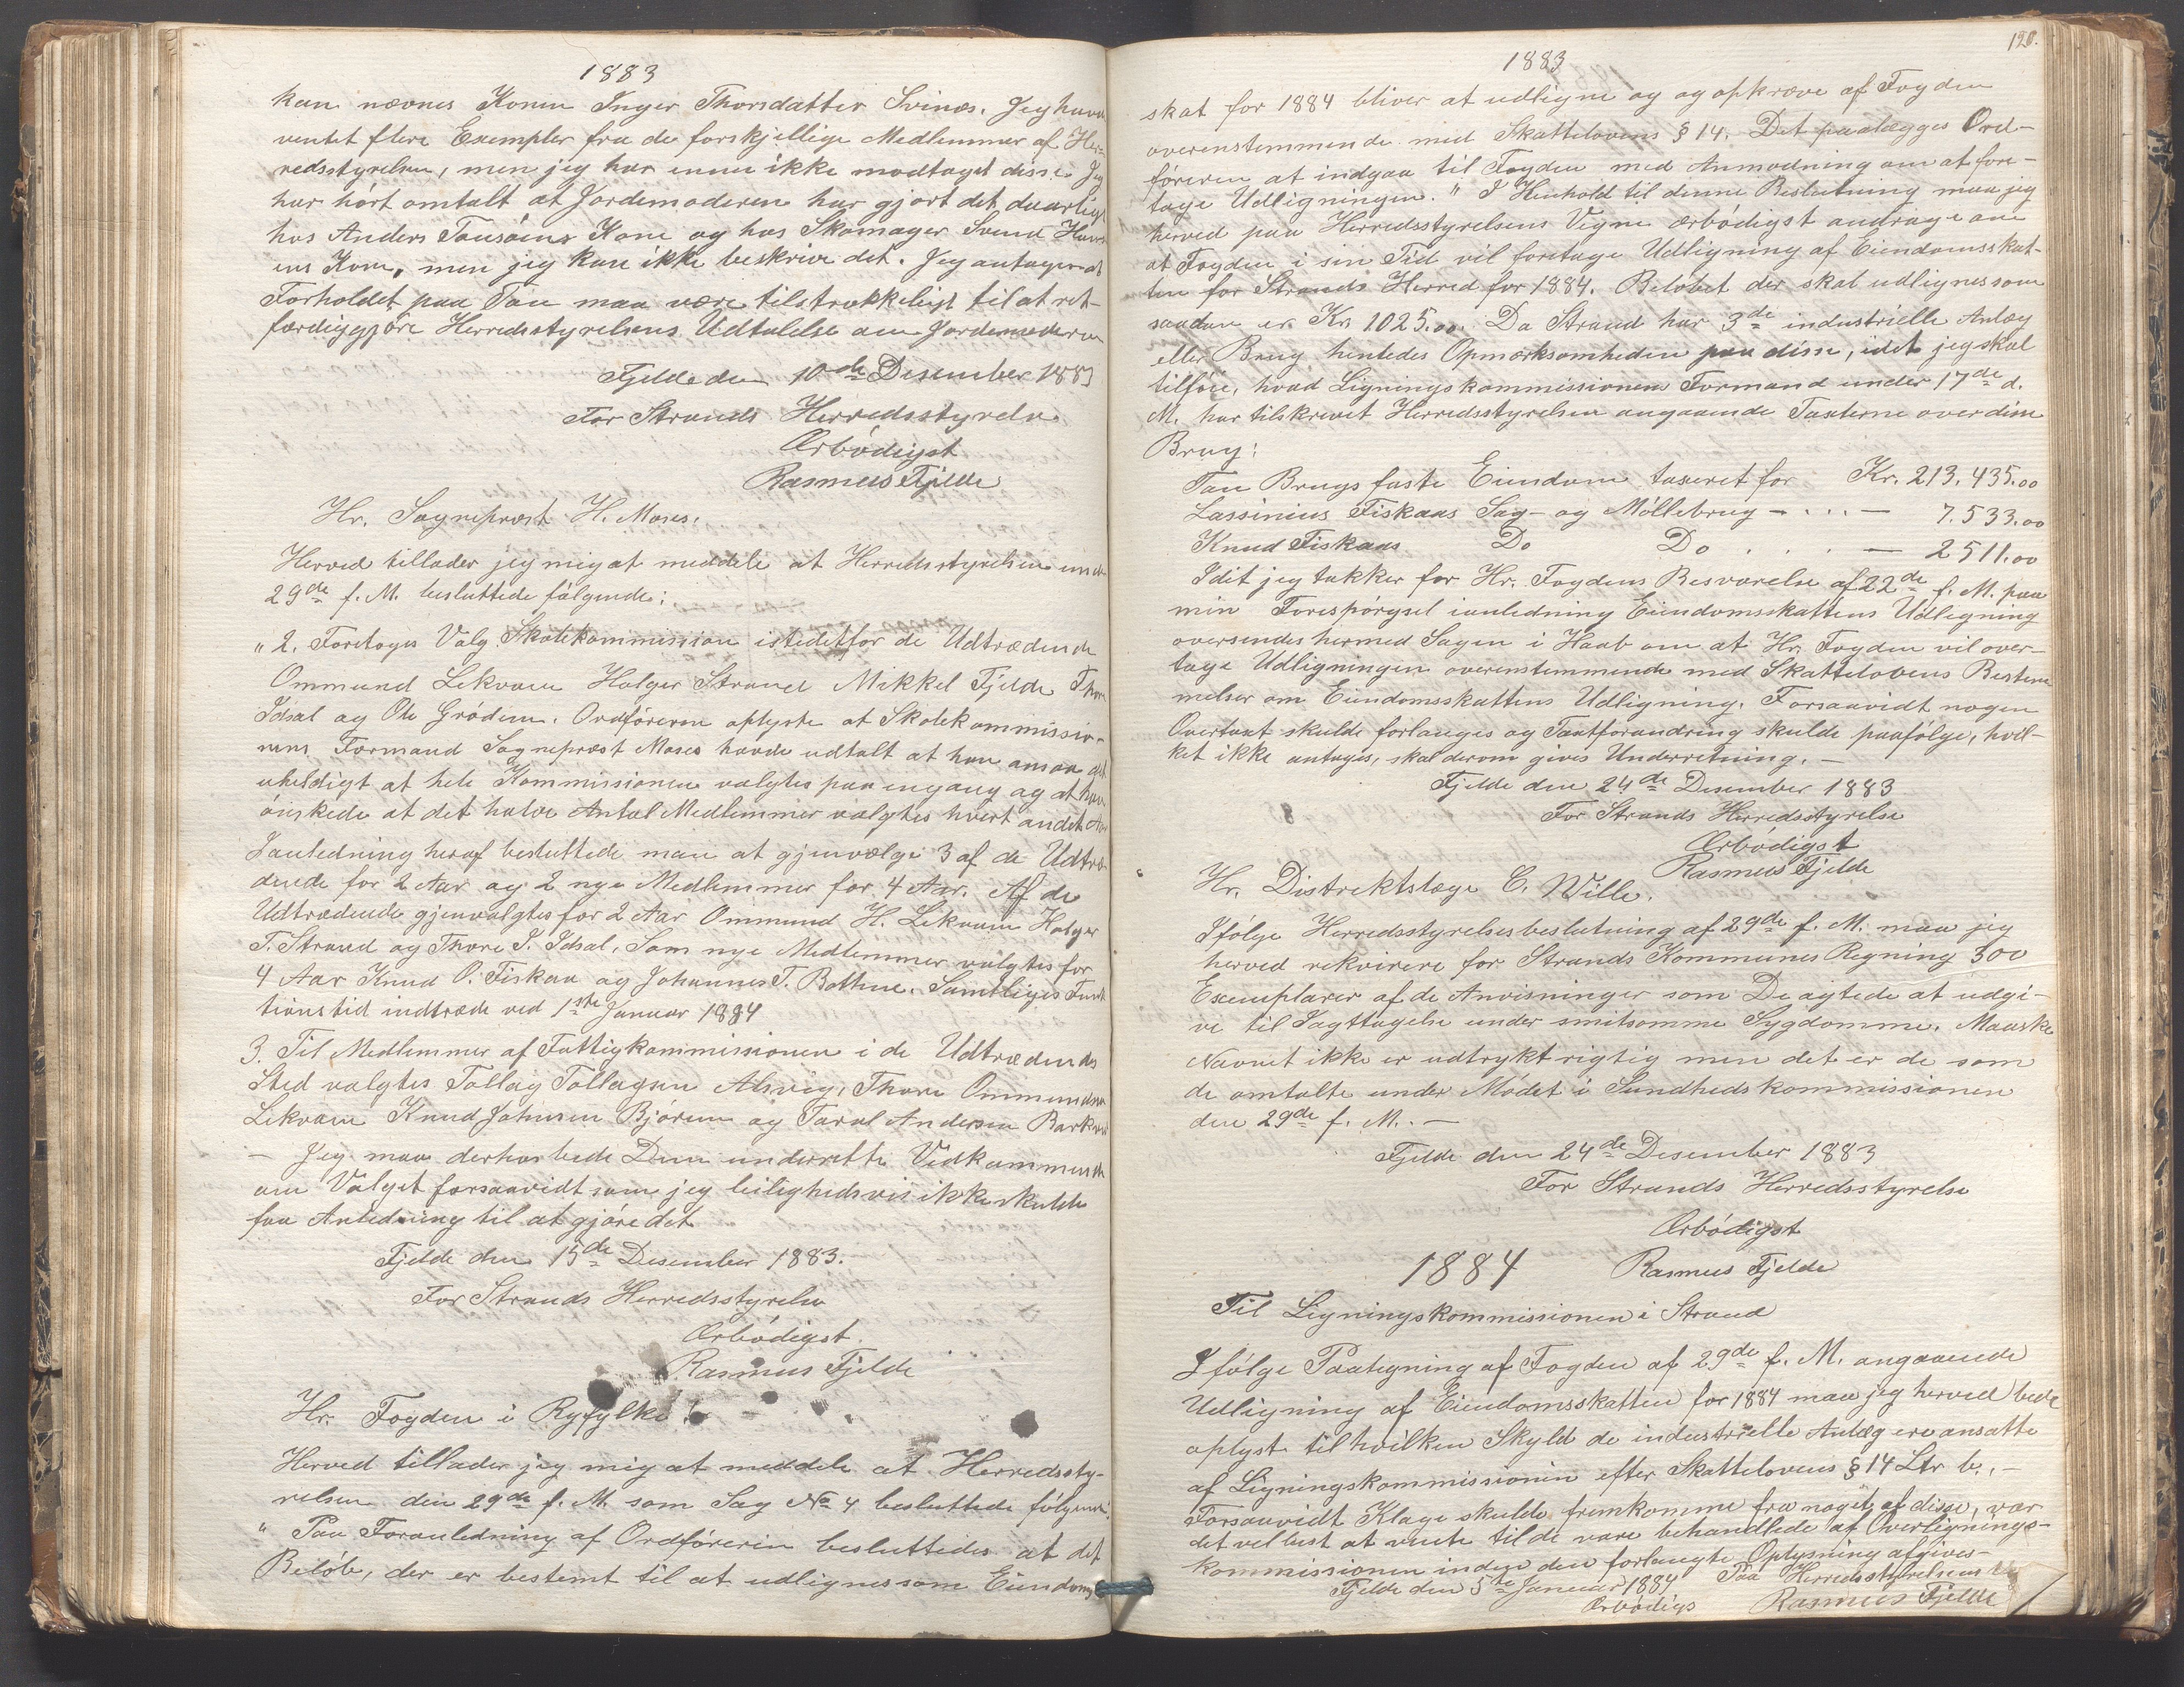 1883
kan nævnes Konen Inger Thorsdatter Svinæs. Jeg havde
ventet flere Exempler fra de forskjellige Medlemmer af Her-
redsstyrelsen, men jeg har ennu ikke modtaget disse. Jeg
har hørt omtalt at Jordemoderen har gjort det daarligt
hos Anders Tausøens Kone og hos Skomager Svend
ens Kone, men jeg kan ikke beskrive det. Jeg antager at
Forholdet paa Tau maa være tilstrækkeligt til at ret-
færdiggjøre Herredsstyrelsens Udtalelse om Jordemoderen
Fjelde den 10de Desember 1883
For Strands Herredsstyrelse
Ærbødigst
Rasmus Fjelde
Hr. Sogneprest H. Moses.
Herved tillader jeg mig at meddele at Herredsstyrelsen under
29de f. M. besluttede følgende:
"2. Foretoges Valg Skolekommission istedetfor de Udtrædende
Ommund Lekvam Holger Strand Mikkel Fjelde Thore
Idsal og Ole Grødem. Ordføreren oplyste at Skolekommissio-
nens Formand Sogneprest Moses havde udtalt at han ansaa det
uheldigt at hele Kommissionen valgtes paa engang og at han
ønskede at det halve Antal Medlemmer valgtes hvert andet Aar
Ianledning heraf besluttede man at gjenvælge 3 af de Udtræ-
dende for 2 Aar og 2 nye Medlemmer for 4 Aar. Af de
Udtrædende gjenvalgtes for 2 Aar Ommund H. Lekvam Holger
T. Strand og Thore I. Idsal. Som nye Medlemmer valgtes for
4 Aar Knud O. Fiskaa og Johannes T. Bothne. Samtliges Funk
tionstid indtræde ved 1ste Januar 1884
3. Til Medlemmer af Fattigkommissionen i de Udtrædendes
Sted valgtes Tollag Tollagsen Alsvig, Thore Ommundsen
Lekvam Knud Johnsen Bjørem og Taral Andersen Barkved
– Jeg maa derhos bede Dem underrette Vedkommende
om Valget forsaavidt som jeg leilighedsvis ikke skulde
faa Anledning til at gjøre det
Fjelde den 15de Desember 1883.
For Strands Herredsstyrelse
Ærbødigst.
Rasmus Fjelde
Hr. Fogden i Ryfylke!
Herved tillader jeg mig at meddele at Herredssty-
relsen den 29de f. M. som Sag No 4 besluttede følgende:
" Paa Foranledning af Ordføreren besluttedes at det
Beløb, der er bestemt til at udlignes som Eiendoms
120.
1883
skat for 1884 bliver at udligne og og opkræve af Fogden
overenstemmende med Skattelovens § 14. Det paalægges Ord-
føreren at indgaa til Fogden med Anmodning om at fore-
tage Udligningen." I Henhold til denne Beslutning maa jeg
herved paa Herredsstyrelsens Vegne ærbødigst andrage om
at Fogden i sin Tid vil foretage Udligning af Eiendomsskat-
ten for Strands Herred for 1884. Beløbet der skal udlignes som
saadan er Kr. 1025.00. Da Strand har 3de industrielle Anlæg
eller Brug henledes Opmærksomheden paa disse, idet jeg skal
tilføie, hvad Ligningskommissionens Formand under 17de d.
M. har tilskrevet Herredsstyrelsen angaaende Taxterne over disse
Brug:
Tau Brugs faste Eiendom taxeret for Kr. 213,435.00
Lassinius Fiskaas Sag- og Møllebrug – . . . – 7.533.00
Knud Fiskaas Do Do . . . – 2511.00
Idet jeg takker for Hr. Fogdens Besvarelse af 22de f. M. paa
min Forespørgsel ianledning Eiendomsskattens Udligning
oversendes hermed Sagen i Haab om at Hr. Fogden vil over-
tage Udligningen overenstemmende med Skattelovens Bestem
melser om Eiendomsskattens Udligning. Forsaavidt nogen
Overtaxt skulde forlanges og Taxtforandring skulde paafølge, hvil-
ket ikke antages, skal derom gives Underretning. –
Fjelde den 24de Desember 1883
For Strands Herredsstyrelse
Ærbødigst
Rasmus Fjelde
Hr. Distriktslæge C. Wille.
Ifølge Herredsstyrelsesbeslutning af 29de f. M. maa jeg
herved rekvirere for Strands Kommunes Regning 300
Exemplarer af de Anvisninger som De agtede at udgi-
ve til Iagttagelse under smitsomme Sygdomme. Maaske
Navnet ikke er udtrykt rigtig men det er de som
de omtalte under Mødet i Sundhedskommissionen
den 29de f. M. –
Fjelde den 24de Desember 1883
For Strands Herredsstyrelse
Ærbødigst
Rasmus Fjelde
1884
Til Ligningskommissionen i Strand
Ifølge Paategning af Fogden af 29de f. M. angaaende
Udligning af Eiendomsskatten for 1884 maa jeg herved bede
oplyst til hvilken Skyld de industrielle Anlæg ere ansatte
af Ligningskommissionen efter Skattelovens § 14 Ltr b. –
Forsaavidt Klage skulde fremkomme fra noget af disse, var
det vel best at vente til de vare behandlede af Overlignings-
kommissionen inden den forlangte Oplysning afgives –
Fjelde den 5te Januar 1884 Paa Herredsstyrelsens
Ærbødigs Rasmus Fjelde